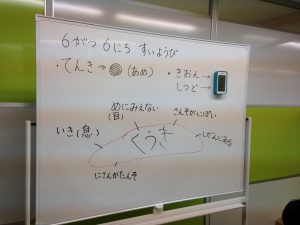 6がつ6にち すいようび
・てんき→ (あめ)
・きおん→
しつど→
めにみえない
(目)
さんそがいっぱい
いき(息)
くうき
しぜんにある
にさんかたんそ